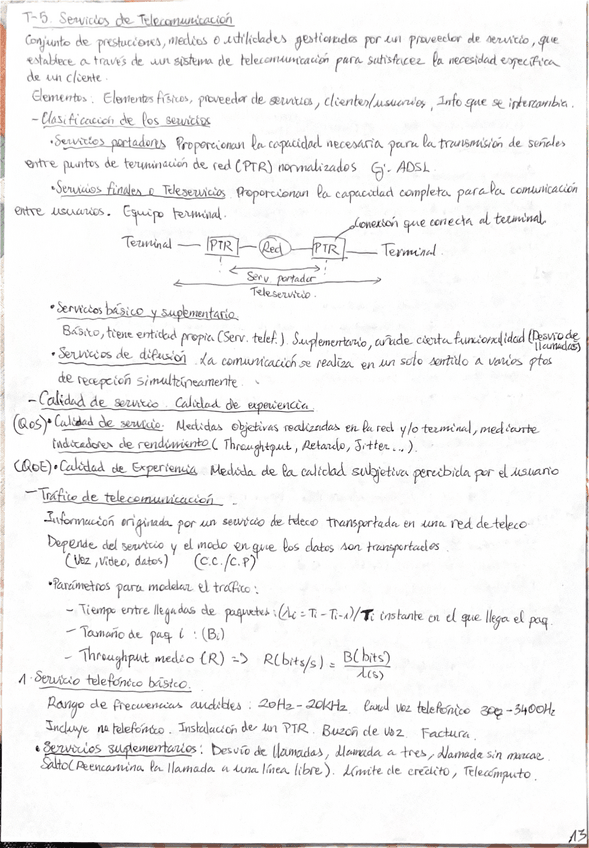 T-5. Servicios de Telecomunicación
Conjunto de prestaciones, medios o utilidades gestionados por un proveedor de servicio, que
establece a través de un sistema de telecomunicación para satisfacer la necesidad específica
de un cliente.
Elementos: Elementos físicos, proveedor de servicios, clientes/usuarios, Info que se intercambia.
- Clasificación de los servicios
• Servicios portadores Proporcionan la capacidad necesaria para la transmisión de señales
entre puntos de terminación de red (PTR) normalizados Ej: ADSL.
• Servicios finales o Teleservicios Proporcionan la capacidad completa para la comunicación
entre usuarios. Equipo terminal.
Conexión que conecta al terminal
Terminal — PTR — Red — PTR — Terminal.
Serv. portador
Teleservicio.
• Servicios básico y suplementario
Básico, tiene entidad propia (Serv. telef.). Suplementario, añade cierta funcionalidad (Desvío de
llamadas)
• Servicios de difusión. La comunicación se realiza en un solo sentido a varios ptos
de recepción simultáneamente.
- Calidad de servicio. Calidad de experiencia
(QoS) • Calidad de servicio. Medidas objetivas realizadas en la red y/o terminal, mediante
indicadores de rendimiento (Throughtput, Retardo, Jitter...).
(QoE) • Calidad de Experiencia Medida de la calidad subjetiva percibida por el usuario
- Tráfico de telecomunicación
Información originada por un servicio de teleco transportada en una red de teleco
Depende del servicio y el modo en que los datos son transportados.
(Voz, video, datos) (C.C./C.P)
• Parámetros para modelar el tráfico:
- Tiempo entre llegadas de paquetes: (λi = Ti - Ti-1)/Ti instante en el que llega el paq.
- Tamaño de paq i : (Bi)
- Throughput medio (R) => R(bits/s) = B(bits)/λ(s)
1. Servicio telefónico básico.
Rango de frecuencias audibles: 20Hz - 20kHz Canal voz telefónico 300 - 3400Hz
Incluye no telefónico. Instalación de un PTR. Buzón de voz. Factura.
• Servicios suplementarios: Desvío de llamadas, llamada a tres, llamada sin marcar.
Salto (Reencamina la llamada a una línea libre). Límite de crédito, Telecómputo.
13